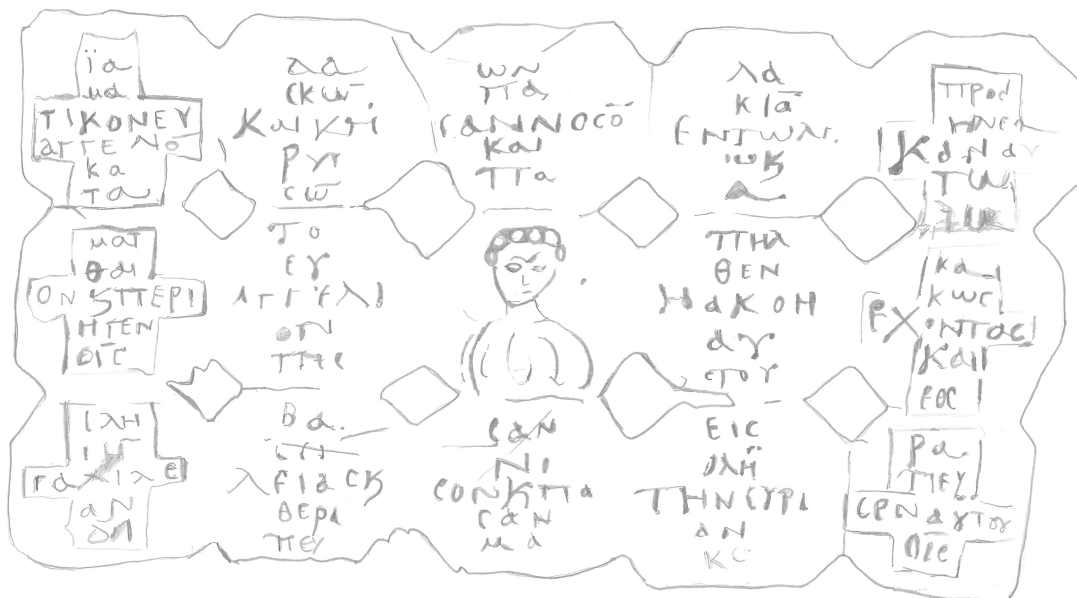 ϊα
μα
ΤΙΚΟΝΕΥ
αΓΓΕΛΙΟ
κα
τα
ματ
θαι
ΟΝ ϛ ΠΕΡΙ
ΗΓΕΝ
ΟΙ̅C̅
ΓαλΙλε
αΝ
δα
CΚω̅
ΡΥC
Cω̅
ΤΟ
ΕΥ
αΓΓΕλΙ
ΟΝ
ΤΗC
Βα
λΕΙαCϗ
ΘΕΡα
ΠΕΥ
ωΝ
Πα
CαΝΝΟCΟ̅
Και
Πα
CαΝ
ΝΙ
CΟΝϗΠα
CαΝ
Μα
λα
ΚΙα̅
ΕΝΤωλα
ωϗ
α
ΠΗλ
ΘΕΝ
ΗαΚΟΗ
αΥ
ΤΟΥ
ΕΙC
ΟλΗ̅
ΤΗΝCΥΡΙ
αΝ
ΠΡΟC
ΗΝΕΓ
ΚαΝαΥ
Τω
Κα
ΚωC
ΕΧΟΝΤαC
Και
ΕΘΕ
Ρα
ΠΕΥ
CΕΝαΥΤΟΥ
ΟΙ̅C̅